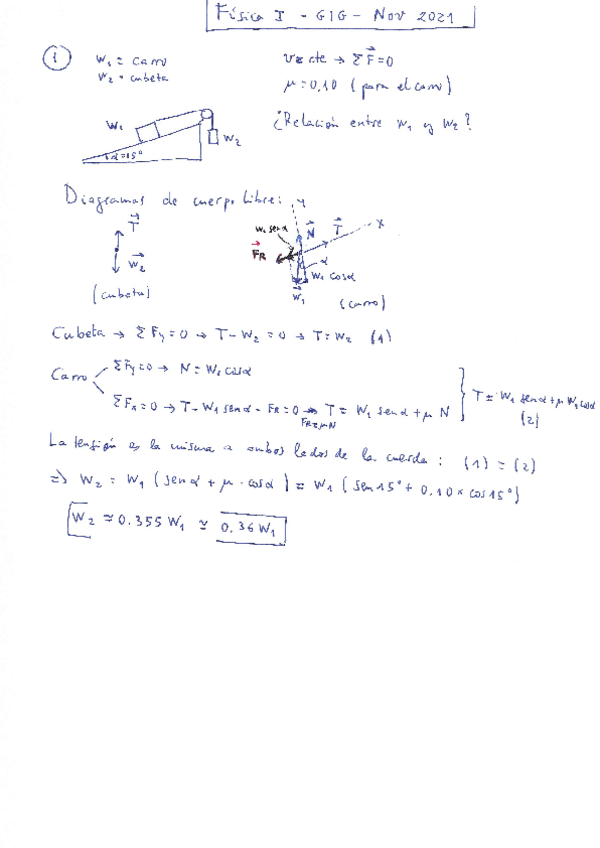 Física I - GIG - Nov 2021
1
W₁ = carro
W₂ = cubeta
v = cte → ΣF⃗ = 0
μ = 0,10 (para el carro)
¿Relación entre W₁ y W₂?
W₁
W₂
α=15°
Diagramas de cuerpo libre:
T⃗
W⃗₂
(cubeta)
y
x
W₁ senα
N⃗
T⃗
F⃗R
α
W₁ cosα
W⃗₁
(carro)
Cubeta → ΣFy = 0 → T - W₂ = 0 → T = W₂ (1)
Carro
ΣFy = 0 → N = W₁ cosα
ΣFx = 0 → T - W₁ senα - FR = 0 → T = W₁ senα + μ N
FR = μN
T = W₁ senα + μ W₁ cosα
(2)
La tensión es la misma a ambos lados de la cuerda: (1) = (2)
⇒ W₂ = W₁ (senα + μ · cosα) = W₁ (sen15° + 0,10 × cos15°)
W₂ ≈ 0.355 W₁ ≃ 0.36 W₁